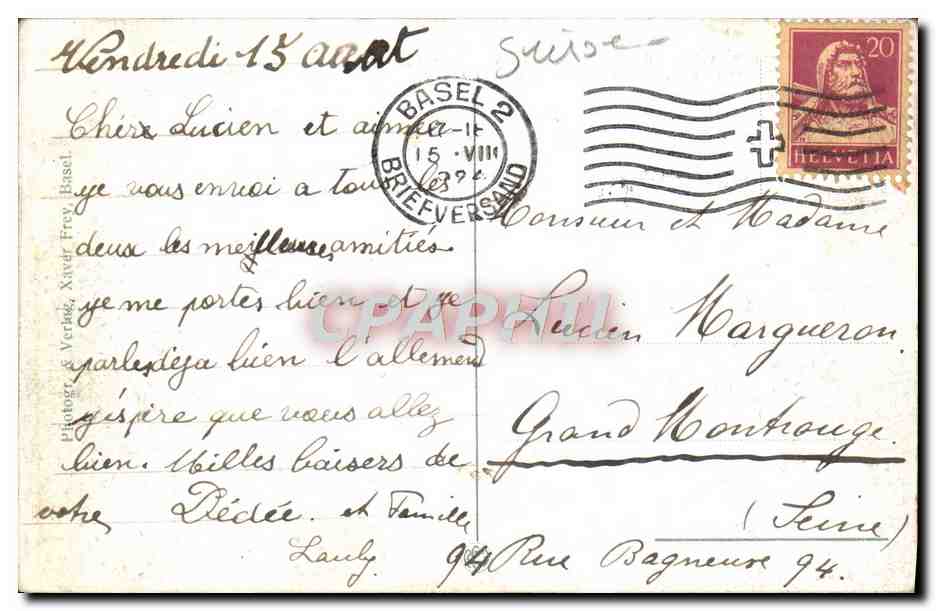 Vendredi 15 aout
Suisse
BASEL 2
15 .VIII
BRIEFVERSAND
20
HELVETIA
Chére Lucien et aimée
je vous envoi a tous les
deux les meilleures amitiés
je me portes bien et je
parle deja bien l'allemend
j'éspère que vous allez
bien. Milles baisers de
votre Dédée. et Famille
Lauly
Monsieur et Madame
Lucien Margueron.
Grand Montrouge.
(Seine)
94 Rue Bagneuse 94.
Photogr. & Verlag, Xaver Frey, Basel.
CPAPHIL